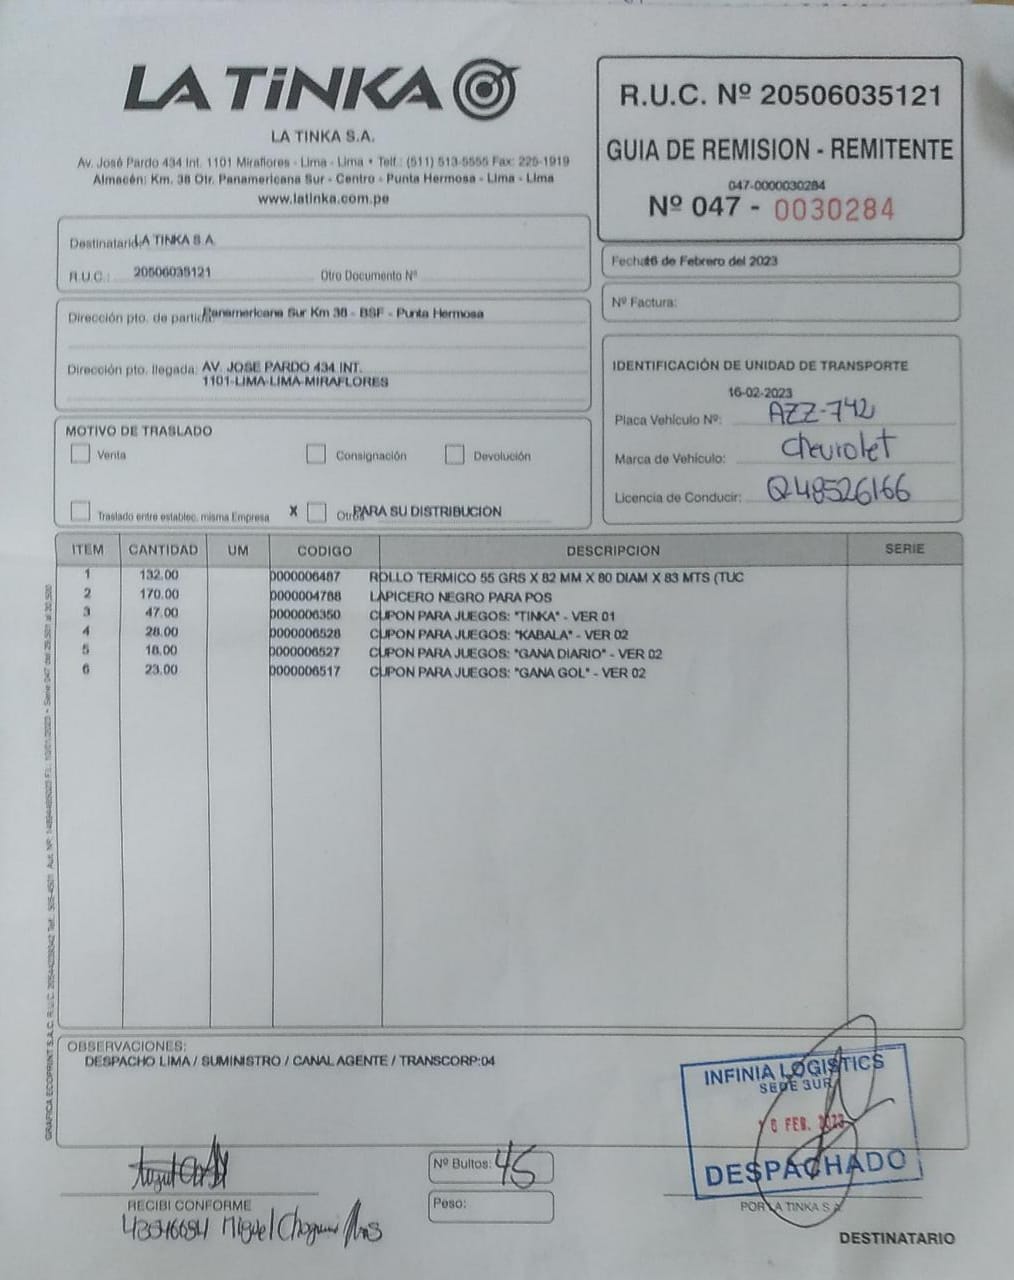 LA TiNKA
LA TINKA S.A.
Av. José Pardo 434 Int. 1101 Miraflores - Lima - Lima • Telf.: (511) 513-5555 Fax: 225-1919
Almacén: Km. 38 Otr. Panamericana Sur - Centro - Punta Hermosa - Lima - Lima
www.latinka.com.pe
R.U.C. Nº 20506035121
GUIA DE REMISION - REMITENTE
047-0000030284
Nº 047 - 0030284
Destinatario: LA TINKA S.A.
R.U.C.: 20506035121 Otro Documento Nº
Fecha: 16 de Febrero del 2023
Nº Factura:
Dirección pto. de partida: Panamericana Sur Km 38 - BSF - Punta Hermosa
Dirección pto. llegada: AV. JOSE PARDO 434 INT.
1101-LIMA-LIMA-MIRAFLORES
IDENTIFICACIÓN DE UNIDAD DE TRANSPORTE
16-02-2023
Placa Vehículo Nº: AZZ-742
Marca de Vehículo: Chevrolet
Licencia de Conducir: Q48526166
MOTIVO DE TRASLADO
Venta Consignación Devolución
Traslado entre establec. misma Empresa X Otros PARA SU DISTRIBUCION
ITEM CANTIDAD UM CODIGO DESCRIPCION SERIE
1 132.00 0000006487 ROLLO TERMICO 55 GRS X 82 MM X 80 DIAM X 83 MTS (TUC
2 170.00 0000004788 LAPICERO NEGRO PARA POS
3 47.00 0000006350 CUPON PARA JUEGOS: "TINKA" - VER 01
4 28.00 0000006528 CUPON PARA JUEGOS: "KABALA" - VER 02
5 18.00 0000006527 CUPON PARA JUEGOS: "GANA DIARIO" - VER 02
6 23.00 0000006517 CUPON PARA JUEGOS: "GANA GOL" - VER 02
OBSERVACIONES:
DESPACHO LIMA / SUMINISTRO / CANAL AGENTE / TRANSCORP:04
INFINIA LOGISTICS
SEDE SUR
FEB. 2023
DESPACHADO
Nº Bultos: 45
Peso:
RECIBI CONFORME
Miguel
POR LA TINKA S.A.
DESTINATARIO
GRAFICA ECOPRINT S.A.C.